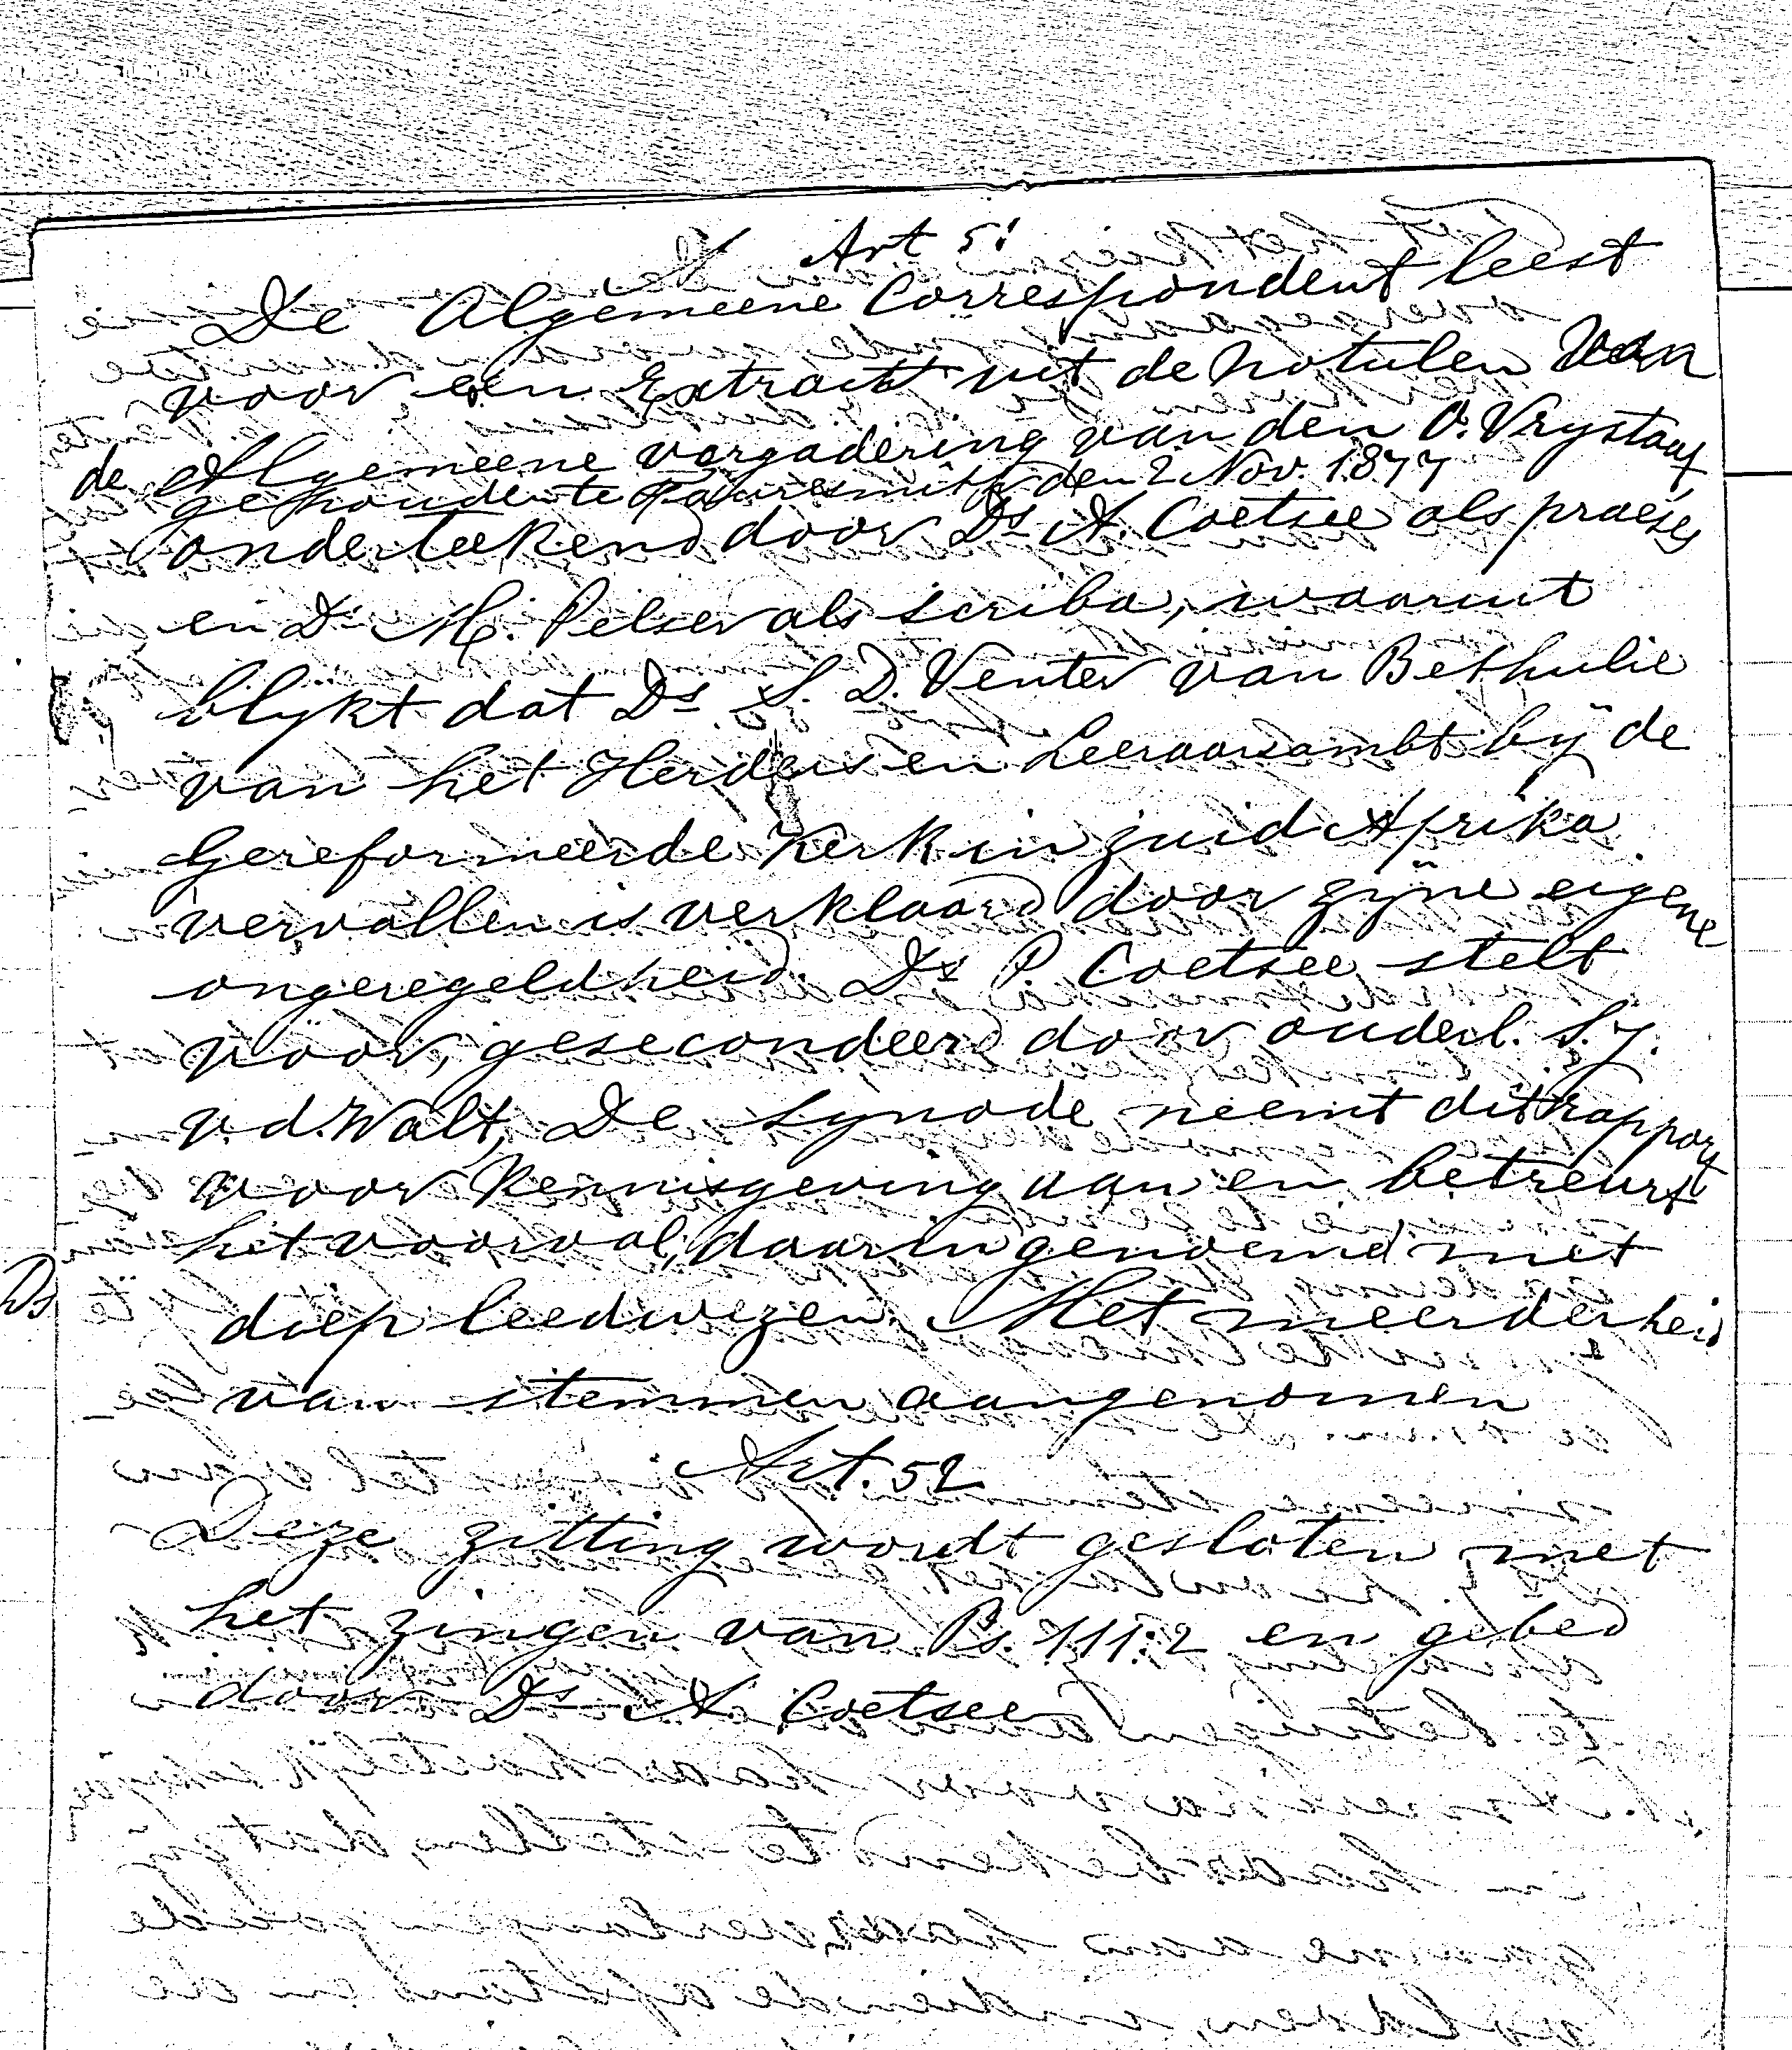 Art 51
De Algemeene Correspondent leest
voor een Extract uit de Notulen van
de Algemeene vergadering van den O. Vrystaat
gehouden te Fauresmith den 2 Nov. 1877
onderteekend door Ds A. Coetsee als praeses
en Ds M. Pelser als scriba, waaruit
blykt dat Ds S. D. Venter van Bethulie
van het Herders en Leeraarsambt bÿ de
Gereformeerde Kerk in Zuid Afrika
vervallen is verklaard door zÿne eigene
ongeregeldheid. Ds P. Coetsee stelt
voor, gesecondeerd door ouderl. S. J.
v. d. Walt, De Synode neemt dit rapport
voor kennisgeving aan en betreurt
het voorval, daarin genoemd met
Ds
diep leedwezen. Met meerderheid
van stemmen aangenomen
Art. 52
Deze zitting wordt gesloten met
het zingen van Ps. 111:2 en gebed
door Ds A. Coetsee